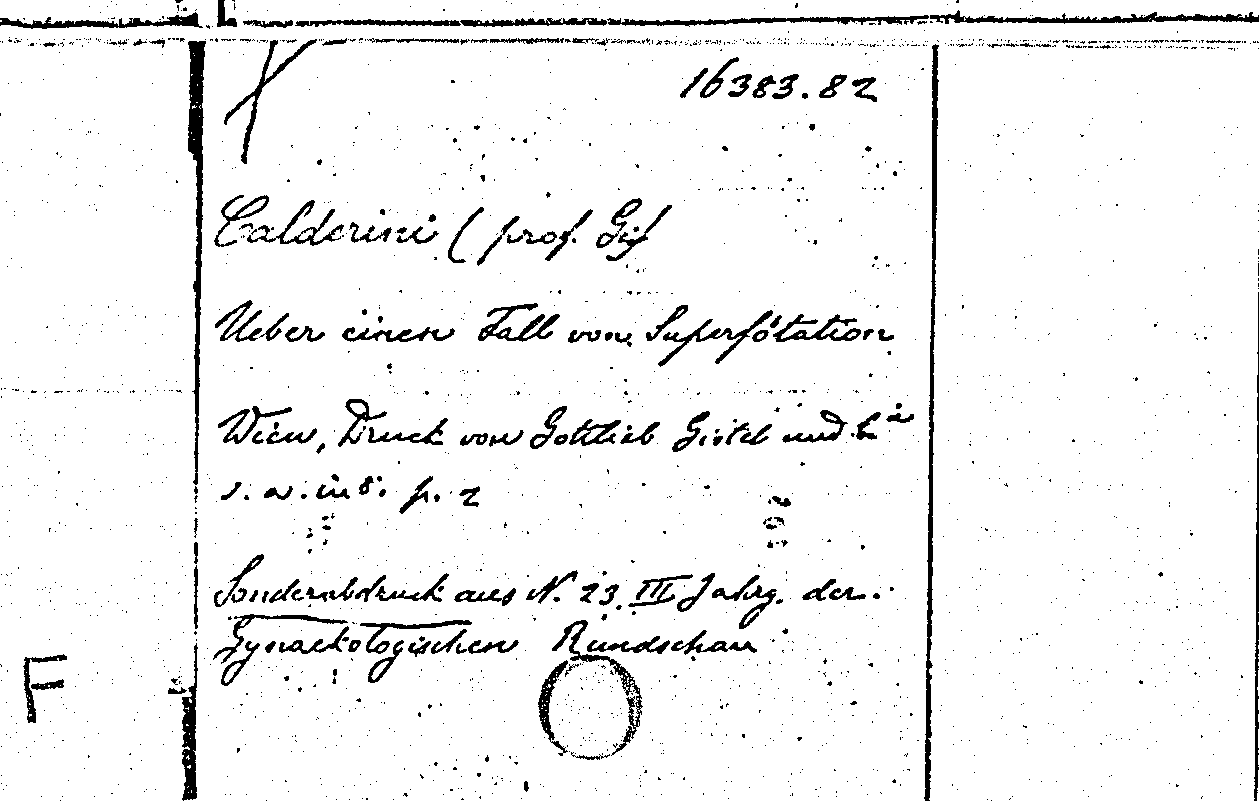 16383.82
Calderini (prof. Gi
Ueber einen Fall von Superfötation
Wien, Druck von Gottlieb Gistel und C.ie
s. a. in 8. p. 2
Sonderabdruck aus N. 23. III Jahrg. der
Gynaekologischen Rundschau
F